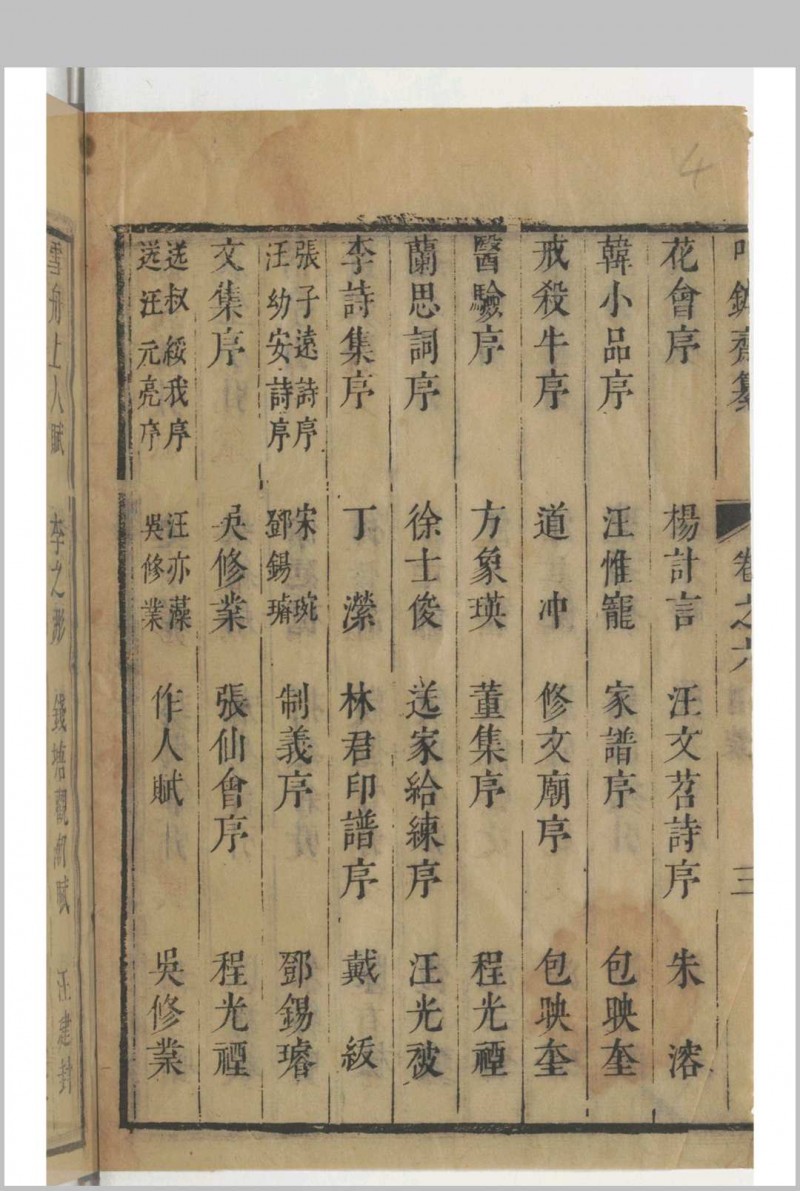 4
卷之六
三
花會序 楊計言 汪文茗詩序 朱溶
韓小品序 汪惟寵 家譜序 包映奎
戒殺牛序 道冲 修文廟序 包映奎
醫驗序 方象瑛 董集序 程光禋
蘭思詞序 徐士俊 送家給練序 汪光被
李詩集序 丁濚 林君印譜序 戴紱
張子遠詩序 宋琬
汪幼安詩序 鄧錫璿 制義序 鄧錫璿
文集序 吳修業 張仙會序 程光禋
送叔綏我序 汪亦藻
送汪元亮序 吳修業 作人賦 吳修業
雪舟上人賦 李之彤 錢塘觀潮賦 汪建封